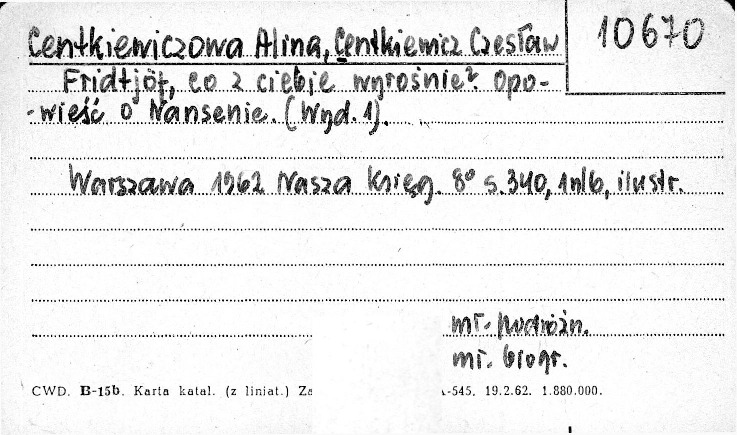 10670
Centkiewiczowa Alina, Centkiewicz Czesław
Fridtjöf, co z ciebie wyrośnie? Opo-
-wieść o Nansenie. (Wyd. 1).
Warszawa 1962 Nasza Księg. 8° s. 340, 1nlb, ilustr.
mł. podróżn.
mł. biogr.
CWD. B-15b. Karta katal. (z liniat.) Za -545. 19.2.62. 1.880.000.